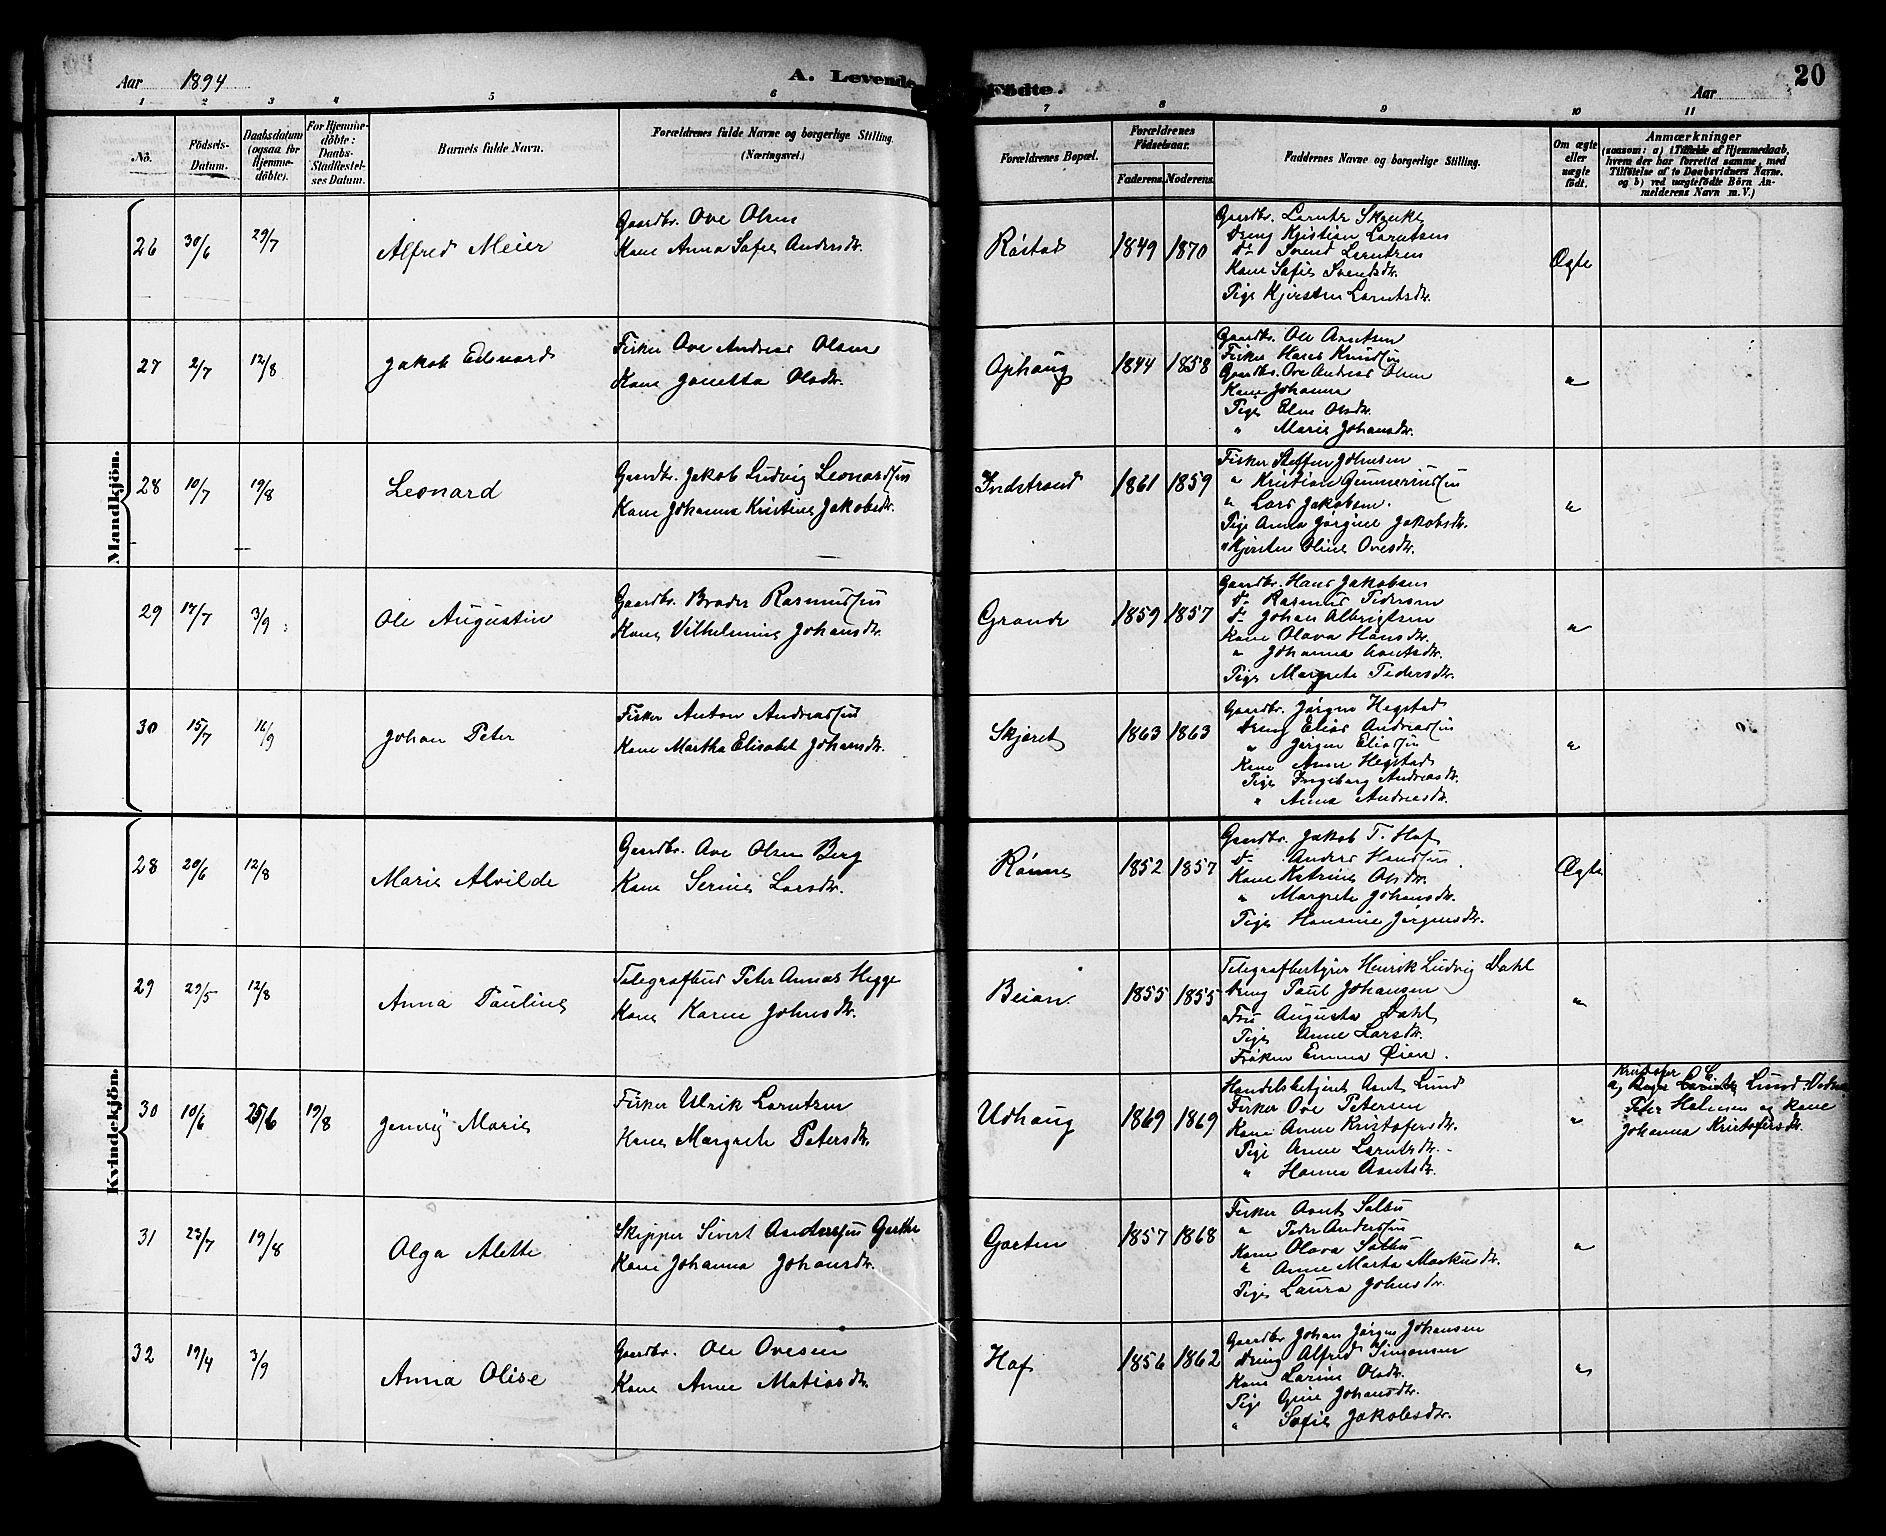 Aar 1894
A. Levende
Födte.
Aar
20
1 2 3 4 5 6 7 8 9 10 11
No.
Födsels-
Datum.
Daabsdatum
(ogsaa for
Hjemme-
döbte).
For Hjemme-
döbte:
Daabs-
Stadfæstel-
ses Datum.
Barnets fulde Navn.
Forældrenes fulde Navne og borgerlige Stilling.
(Næringsvei.)
Forældrenes Bopæl.
Forældrenes
Födselsaar.
Faderens. Moderens.
Faddernes Navne og borgerlige Stilling.
Om ægte
eller
uægte
födt.
Anmærkninger
(saasom: a) i Tilfælde af Hjemmedaab,
hvem der har forrettet samme, med
Tilföielse af to Daabsvidners Navne.
og b) ved uægtefödte Börn An-
melderens Navn m. V.)
Mandkjön.
26 30/6 29/7
Alfred Meier
Gaardbr. Ove Olsen
Kone Anna Sofie Andersdr.
Røstad 1849 1870
Gaardbr. Lornts Skjenkt
Dreng Kristian Lorntsen
do Svend Lorntzen
Kone Sofie Svendsdr.
Pige Kjersten Lorntsdr.
Ægte
27 2/7 12/8
Jakob Edevard
Fisker Ove Andreas Olsen
Kone Jonetta Olsdr.
Ophaug 1844 1858
Gaardbr. Ole Arntsen
Fisker Hans Knudsen
Gaardbr. Ove Andreas Olsen
Kone Johanna
Pige Elen Olsdr.
" Marie Johansdr.
"
28 10/7 19/8
Leonard
Gaardbr. Jakob Ludvig Leonardsen
Kone Johanna Kristine Jakobsdr.
Indstrand 1861 1859
Fisker Steffen Johnsen
" Kristian Gunneriussen
" Lars Jakobsen.
Pige Anna Jørgine Jakobsdr.
" Kjersten Oline Ovesdr.
"
29 17/7 3/9
Ole Augustin
Gaardbr. Broder Rasmussen
Kone Vilhelmine Johansdr.
Grande 1859 1857
Gaardbr. Hans Jakobsen
do Rasmus Pedersen
do Johan Albrigtsen
Kone Olava Hansdr.
" Johanna Arntsdr.
Pige Margrete Pedersdr.
"
30 15/7 16/9
Johan Peter
Fisker Anton Andreassen
Kone Martha Elisabet Johansdr.
Skjøret 1863 1863
Gaardbr. Jørgen Hegstad
Dreng Elias Andreassen
" Jørgen Eliassen
Kone Anne Hegstad
Pige Ingeborg Andreasdr.
" Anna Andreasdr.
"
Kvindekjön.
28 20/6 12/8
Marie Alvilde
Gaardbr. Ove Olsen Berg
Kone Serine Larsdr.
Rønne 1852 1857
Gaardbr. Jakob T. Hof
do Anders Hansen
Kone Katrine Olsdr.
" Margrete Johansdr.
Pige Hansine Jørgensdr.
Ægte
29 29/5 12/8
Anna Pauline
Telegrafbud Peter Annæs Hegge
Kone Karen Johnsdr.
Beian. 1855 1855
Telegrafbestyrer Henrik Ludvig Dahl
Dreng Paul Johansen
Fru Augusta Dahl
Pige Anne Larsdr.
Frøken Emma Øien.
"
30 10/6 25/6 19/8
Jenny Marie
Fisker Ulrik Lorntzen
Kone Margrete Petersdr.
Udhaug 1869 1869
Handelsbetjent Arnt Lund
Fisker Ove Petersen
Kone Anne Kristofersdr.
Pige Anne Lorntsdr.
" Hanna Arntsdr.
"
Kristofer
Lund
Peter og Kone
Johanna Kristofersdr.
31 23/7 19/8
Olga Alette
Skipper Sivert Anderssen Garten
Kone Johanna Johansdr.
Garten 1857 1868
Fisker Arnt Salbu
" Peder Anderssen
Kone Olava Salbu
" Anne Marta Markusdr.
Pige Laura Johnsdr.
"
32 19/4 3/9
Anna Olise
Gaardbr. Ole Ovesen
Kone Anne Matiasdr.
Hof 1856 1862
Gaardbr. Johan Jørgen Johansen
Dreng Alfred Simonsen
Kone Larine Olsdr.
Pige Gine Johansdr.
" Sofie Jakobsdr.
"